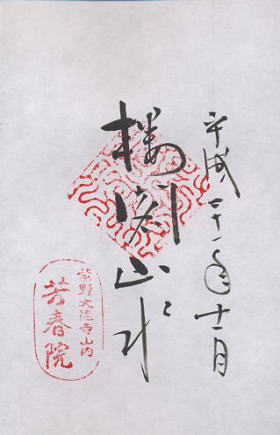 平成二十一年十一月
楼閣山水
紫野大徳寺山内
芳春院